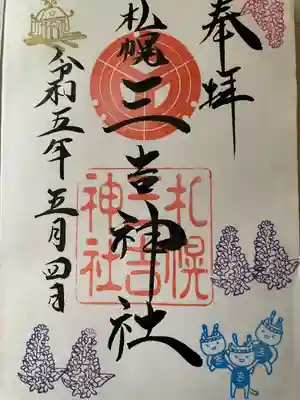 奉拝
札幌三吉神社
札幌
三吉
神社
令和五年五月四日